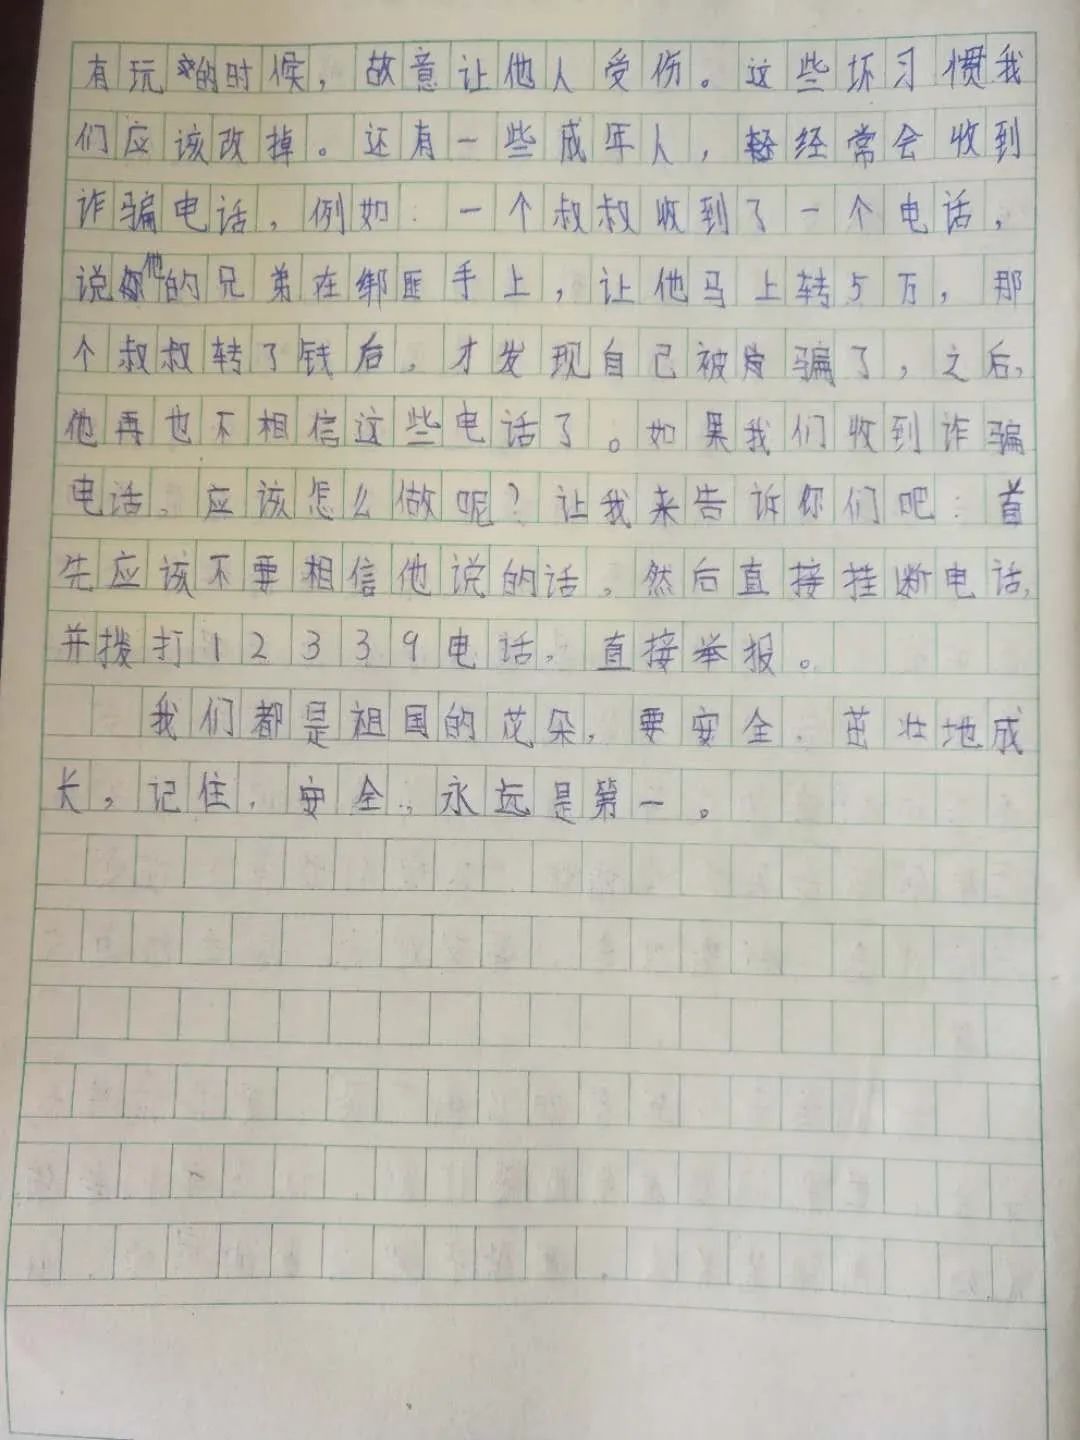 有玩的时候，故意让他人受伤。这些坏习惯我
们应该改掉。还有一些成年人，经常会收到
诈骗电话，例如：一个叔叔收到了一个电话，
说他的兄弟在绑匪手上，让他马上转5万，那
个叔叔转了钱后，才发现自己被骗了，之后，
他再也不相信这些电话了。如果我们收到诈骗
电话，应该怎么做呢？让我来告诉你们吧：首
先应该不要相信他说的话，然后直接挂断电话，
并拨打12339电话，直接举报。
我们都是祖国的花朵，要安全、茁壮地成
长，记住，安全，永远是第一。